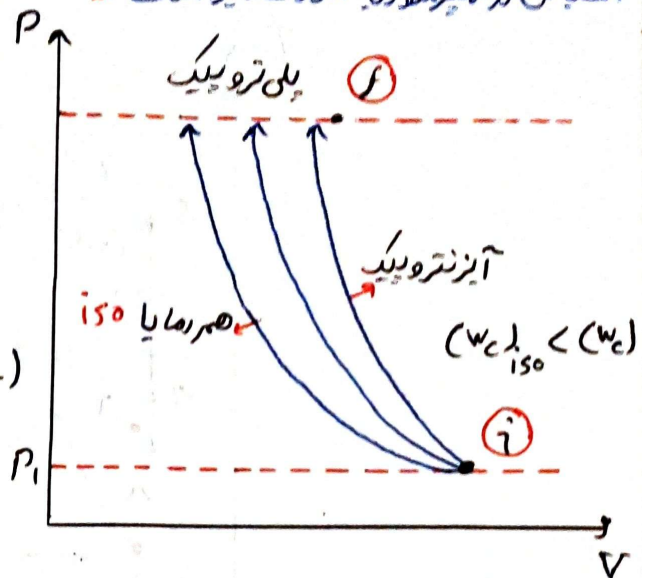 P
پلی تروپیک f
آیزنتروپیک
همدما یا iso
(Wc)iso < (Wc)
i
P1
V